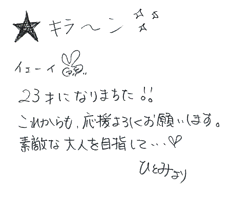 ★キラ〜ン
イェーイ
23才になりまちた!!
これからも、応援よろしくお願いします。
素敵な大人を目指して…♡
ひとみより